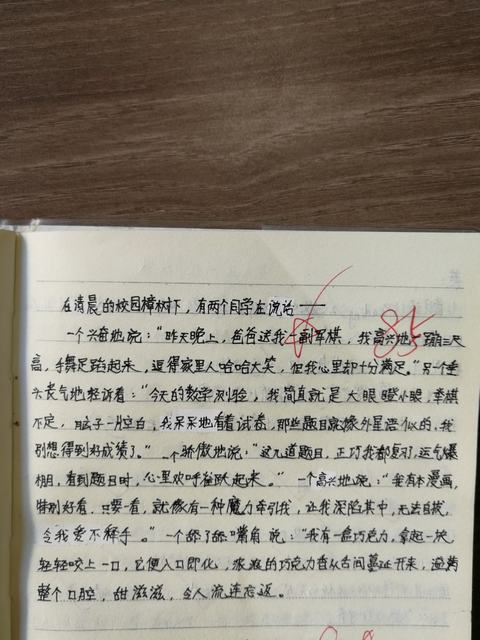 在清晨的校园樟树下，有两个同学在说话——
一个兴奋地说：“昨天晚上，爸爸送我一副军棋，我高兴地一蹦三尺
高，手舞足蹈起来，逗得家里人哈哈大笑，但我心里却十分满足。”另一个垂
头丧气地轻诉着：“今天的数学测验，我简直就是大眼瞪小眼，举棋
不定，脑子一片空白，我呆呆地看着试卷，那些题目就像外星语似的，我
别想得到好成绩了。”一个骄傲地说：“这几道题目，正巧我都复习，运气爆
棚，看到题目时，心里欢呼雀跃起来。”一个高兴地说：“我有本漫画，
特别好看，只要一看，就像有一种魔力牵引我，让我深陷其中，无法自拔，
令我爱不释手。”一个舔了舔嘴角说：“我有一盒巧克力，拿起一块
轻轻咬上一口，它便入口即化，浓浓的巧克力香从舌间蔓延开来，溢满
整个口腔，甜滋滋，令人流连忘返。
85